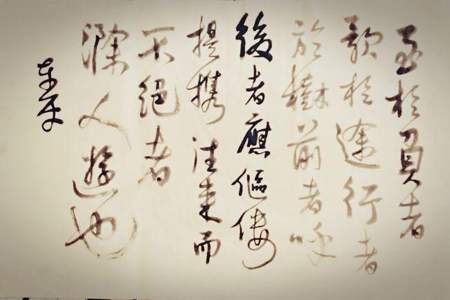 至於負者
歌於途行者
於樹前者呼
後者應傴僂
提攜往來而
不絕者
滁人遊也